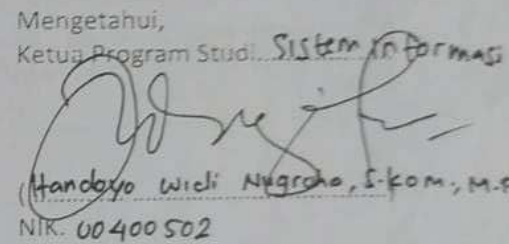 Mengetahui,
Ketua Program Studi Sistem informasi
(Handoyo Widi Nugroho, S.kom., M.
NIK. 00400502